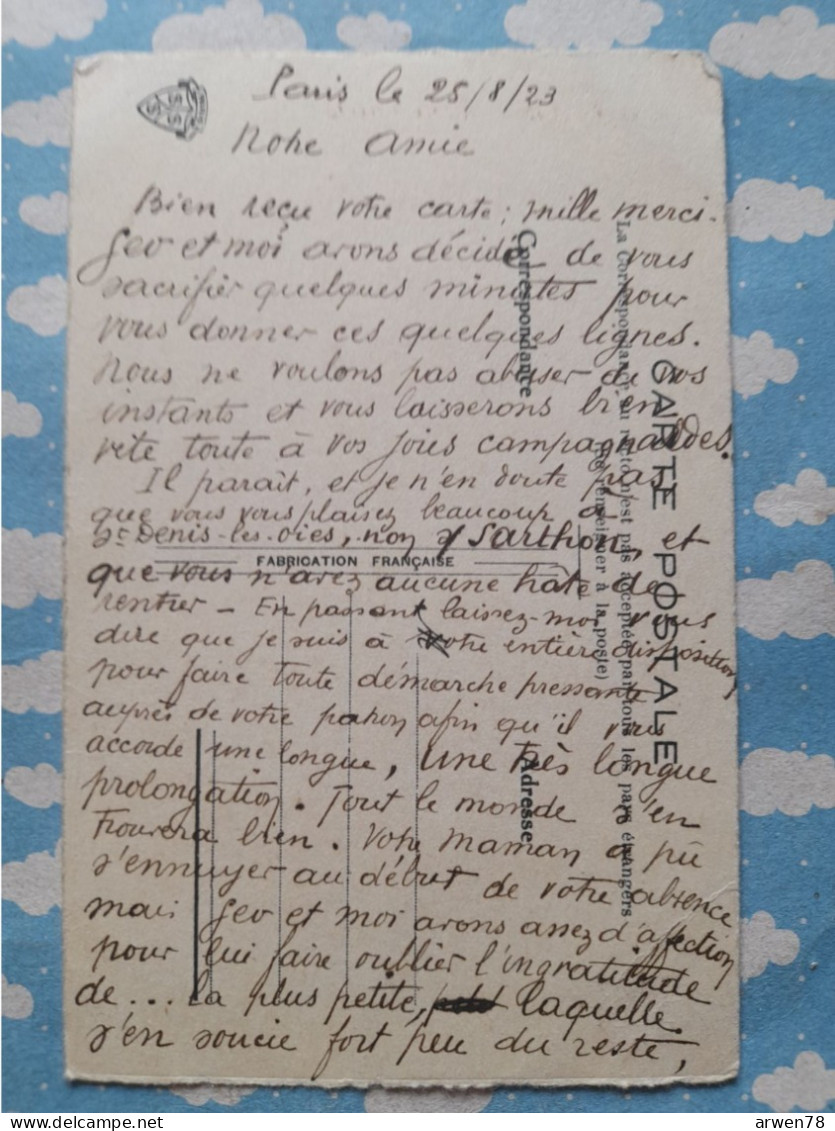 Paris le 25/8/23
Notre Amie
Bien reçu votre carte ; mille merci.
Geo et moi avons décidé de vous
sacrifier quelques minutes pour
vous donner ces quelques lignes.
Nous ne voulons pas abuser de vos
instants et vous laisserons bien
vite toute à vos joies campagnardes.
Il paraît, et je n'en doute pas,
que vous vous plaisez beaucoup à
St Denis-les-oies, non s/ Sarthon, et
que vous n'avez aucune hâte de
rentrer – En passant laissez-moi vous
dire que je suis à votre entière disposition
pour faire toute démarche pressante
auprès de votre patron afin qu'il vous
accorde une longue, une très longue
prolongation. Tout le monde s'en
trouvera bien. Votre maman a pu
s'ennuyer au début de votre absence
mais Geo et moi avons assez d'affection
pour lui faire oublier l'ingratitude
de... la plus petite, laquelle
s'en soucie fort peu du reste,
CARTE POSTALE
La Correspondance au recto n'est pas acceptée par tous les pays étrangers
(Se renseigner à la poste)
Correspondance
Adresse
FABRICATION FRANÇAISE
arwen78